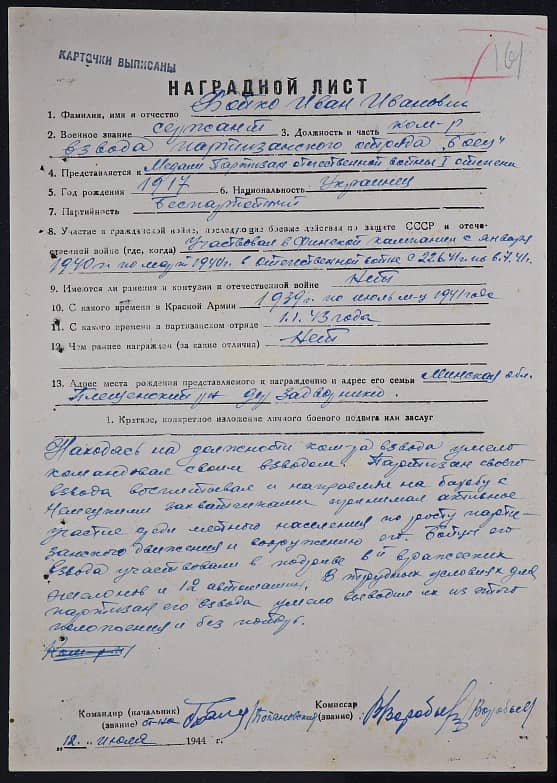 КАРТОЧКИ ВЫПИСАНЫ
161
НАГРАДНОЙ ЛИСТ
1. Фамилия, имя и отчество Бойко Иван Иванович
2. Военное звание сержант 3. Должность и часть ком-р
взвода партизанского отряда "Боец"
4. Представляется к Медали Партизан отечественной войны I степени
5. Год рождения 1917 6. Национальность Украинец
7. Партийность Беспартейный
8. Участие в гражданской войне, последующих боевых действиях по защите СССР и отече-
ственной войне (где, когда) Участвовал в Финской кампании с января
1940 г. по март 1940 г. в отечественной войне с 22.6.41 г. по 8.7.41.
9. Имеются ли ранения и контузии в отечественной войне Нет
10. С какого времени в Красной Армии 1939 г. по июль м-ц 1941 года
11. С какого времени в партизанском отряде 1.1.43 года
12. Чем раннее награжден (за какие отличия) Нет
13. Адрес места рождения представляемого к награждению и адрес его семьи Минская обл.
Плещенский р-н д.
1. Краткое, конкретное изложение личного боевого подвига или заслуг
Находясь на должности ком-ра взвода умело
командовал своим взводом. Партизан своего
взвода воспитывал и направлял на борьбу с
Немецкими захватчиками принимал активное
участие среди местного населения по росту парти-
занского движения и вооружению его. Бойцы его
взвода участвовали в подрыве 8 вражеских
эшелонов и 12 автомашин. В трудных условиях для
партизан его взвода умело выводил их из этого
положения и без потерь.
Ком-р
Командир (начальник)
(звание) ст-на
Комиссар
(звание) /Воробьев/
"12" июля 1944 г.